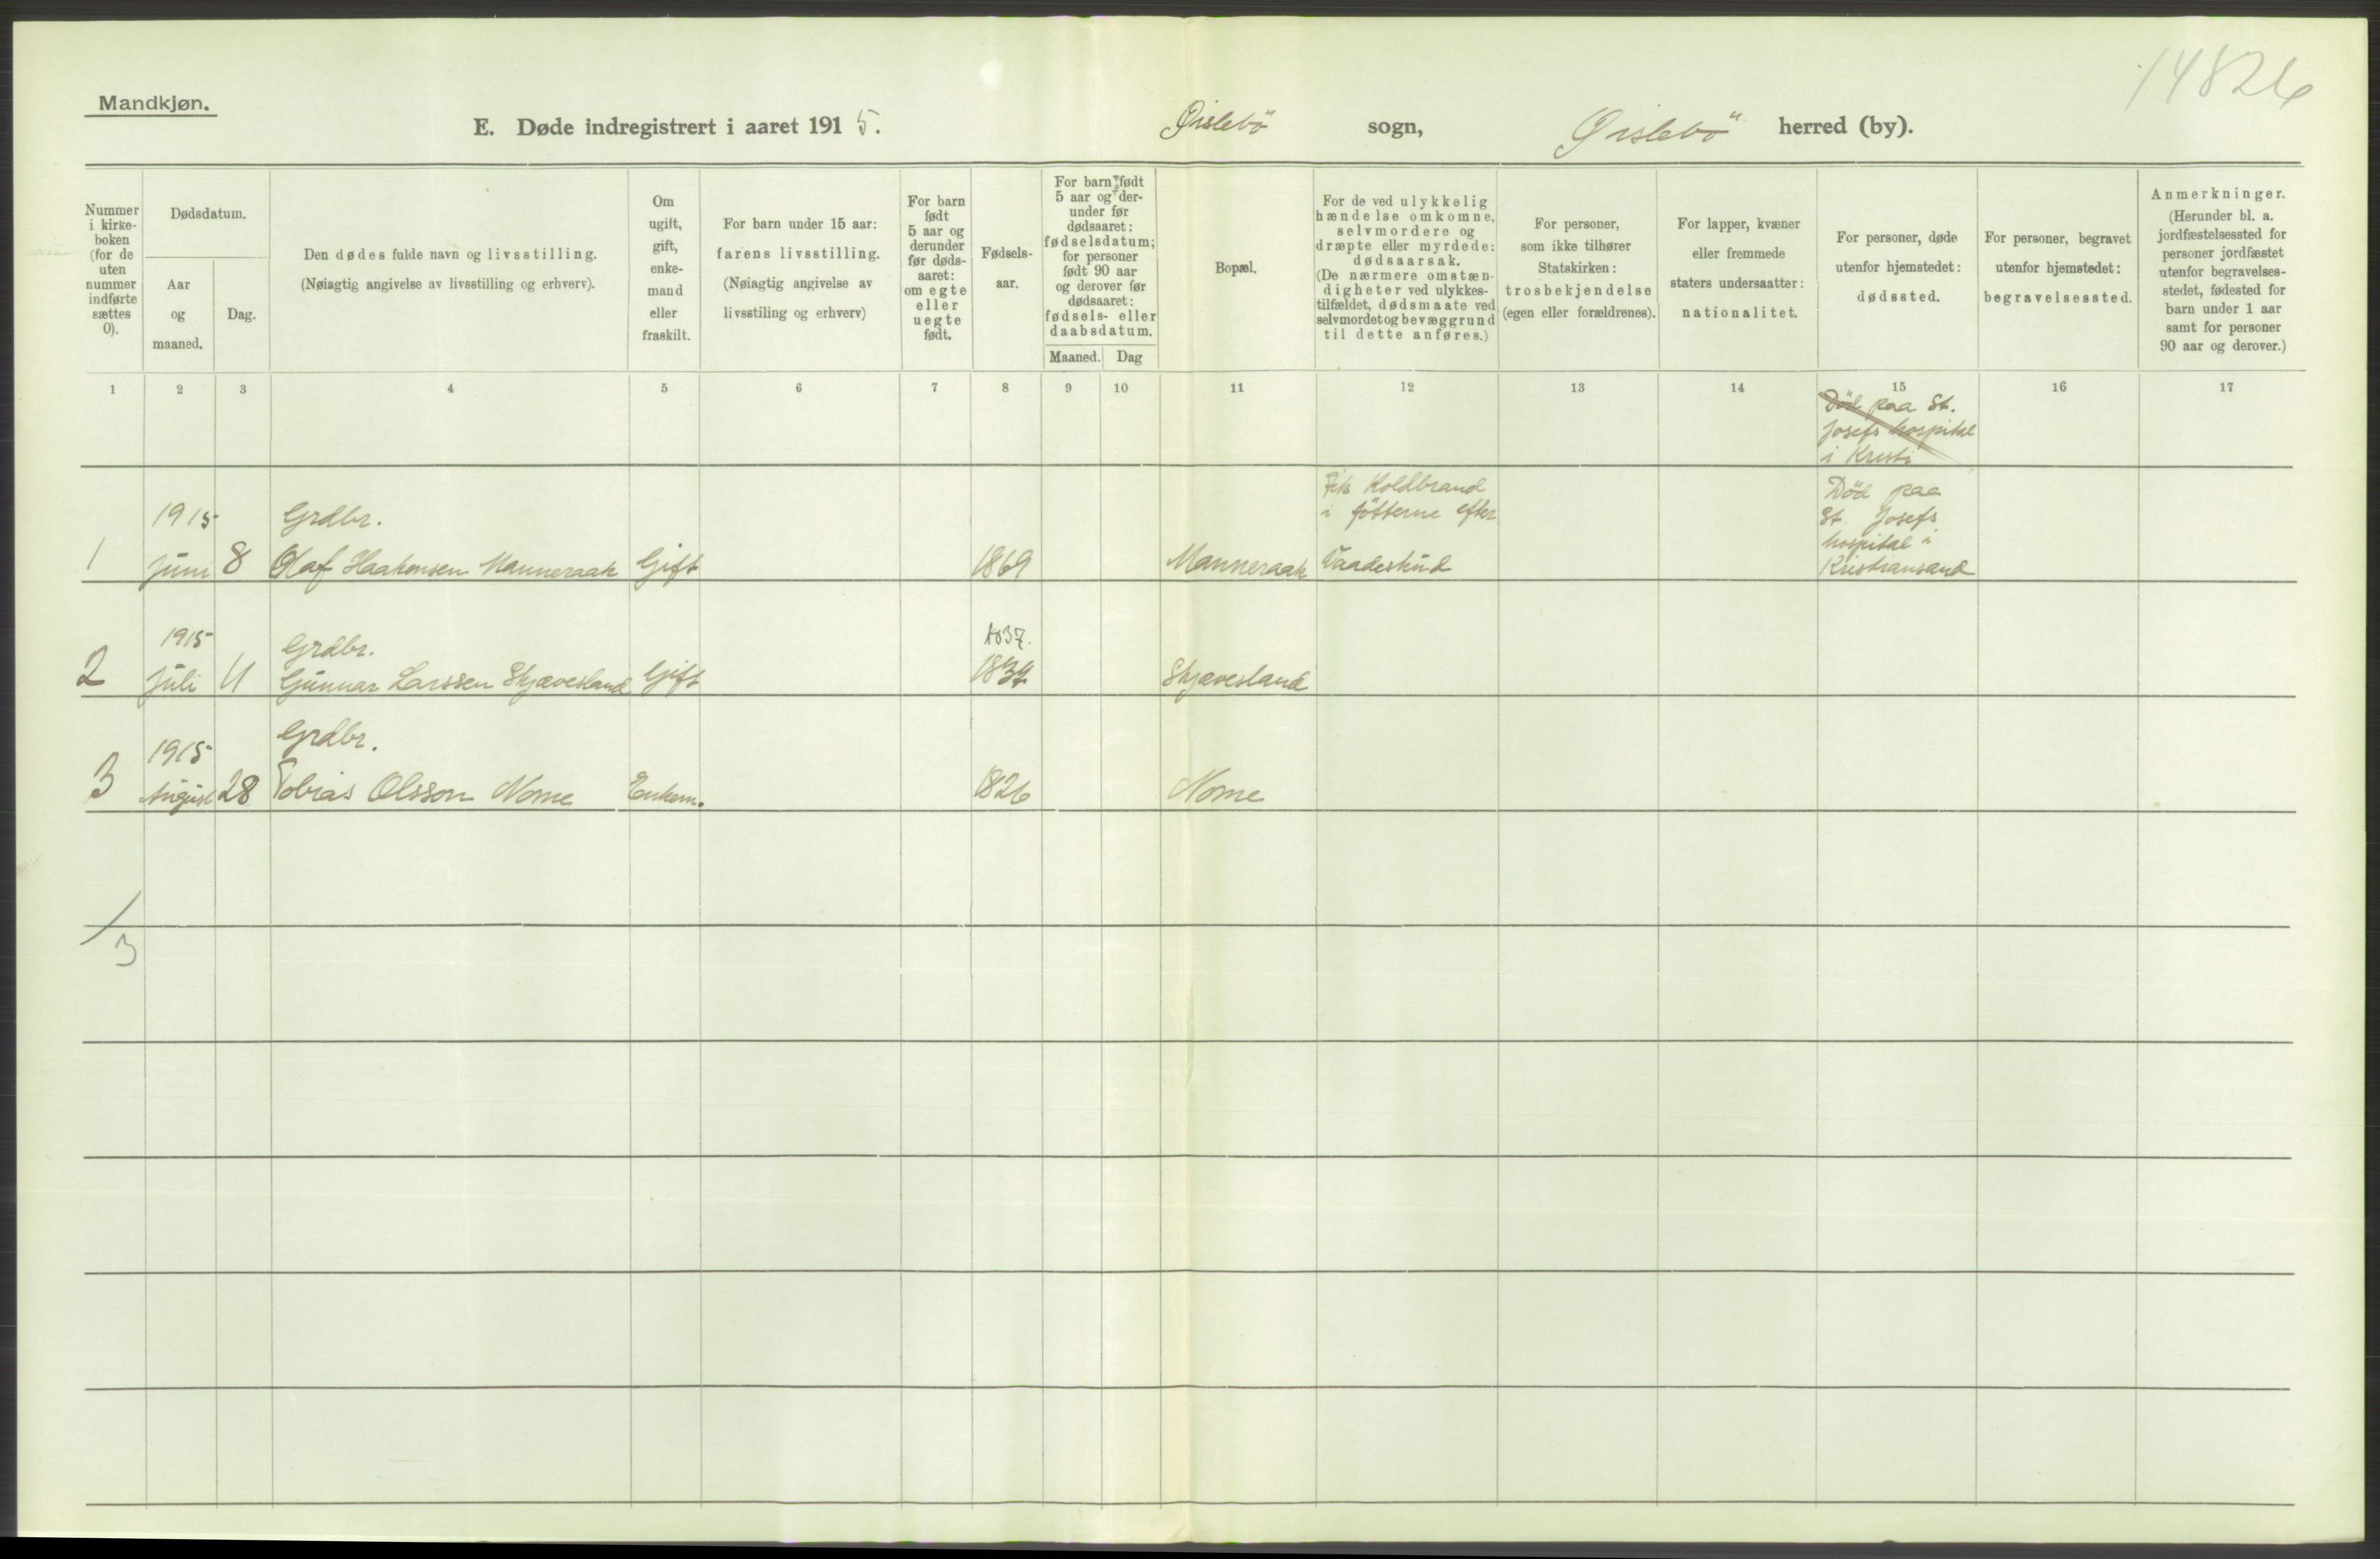 14826
Mandkjøn.
E. Døde indregistrert i aaret 1915. Øislebö sogn, Øislebö herred (by).
Nummer i kirke- boken (for de uten nummer indførte sættes 0).
Dødsdatum.
Aar og maaned.
Dag.
Den dødes fulde navn og livsstilling.
(Nøiagtig angivelse av livsstilling og erhverv).
Om ugift, gift, enke- mand eller fraskilt.
For barn under 15 aar:
farens livsstilling.
(Nøiagtig angivelse av
livsstiling og erhverv)
For barn født 5 aar og derunder før døds- aaret: om egte eller uegte født.
Fødsels- aar.
For barn født 5 aar og der- under før dødsaaret: fødselsdatum; for personer født 90 aar og derover før dødsaaret: fødsels- eller daabsdatum.
Maaned. Dag
Bopæl.
For de ved ulykkelig hændelse omkomne, selvmordere og dræpte eller myrdede: dødsaarsak. (De nærmere omstæn- digheter ved ulykkes- tilfældet, dødsmaate ved selvmordet og bevæggrund til dette anføres.)
For personer, som ikke tilhører Statskirken: trosbekjendelse (egen eller forældrenes).
For lapper, kvæner eller fremmede staters undersaatter: nationalitet.
For personer, døde utenfor hjemstedet: dødssted.
For personer, begravet utenfor hjemstedet: begravelsessted.
Anmerkninger.
(Herunder bl. a. jordfæstelsessted for personer jordfæstet utenfor begravelses- stedet, fødested for barn under 1 aar samt for personer 90 aar og derover.)
1 2 3 4 5 6 7 8 9 10 11 12 13 14 15 16 17
Död paa St.
Josefs hospital
i Kristi
Fik Koldbrand Död paa
1915 Grdbr. i fötterne efter St. Josefs
hospital i
1 Juni 8 Olaf Haakonsen Manneraak Gift 1869 Manneraak Vaadeskud Kristiansand
1915 Grdbr. 1837.
2 Juli 11 Gunnar Larssen Skjævesland Gift 1834 Skjævesland
1915 Grdbr.
3 August 28 Tobias Olsson Nome Enkem. 1826 Nome
3